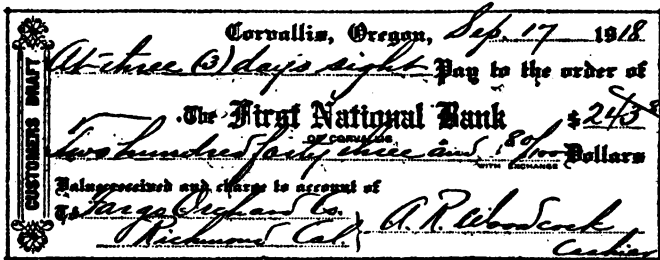 CUSTOMERS DRAFT
Corvallis, Oregon, Sep. 17 1918
At three (3) days sight Pay to the order of
The First National Bank $ 243
OF CORVALLIS
Two hundred forty three and 80/100 Dollars
WITH EXCHANGE
Value received and charge to account of
To Fargo Orchard Co.
Richmond Cal. A. R. Woodcock
Cashier